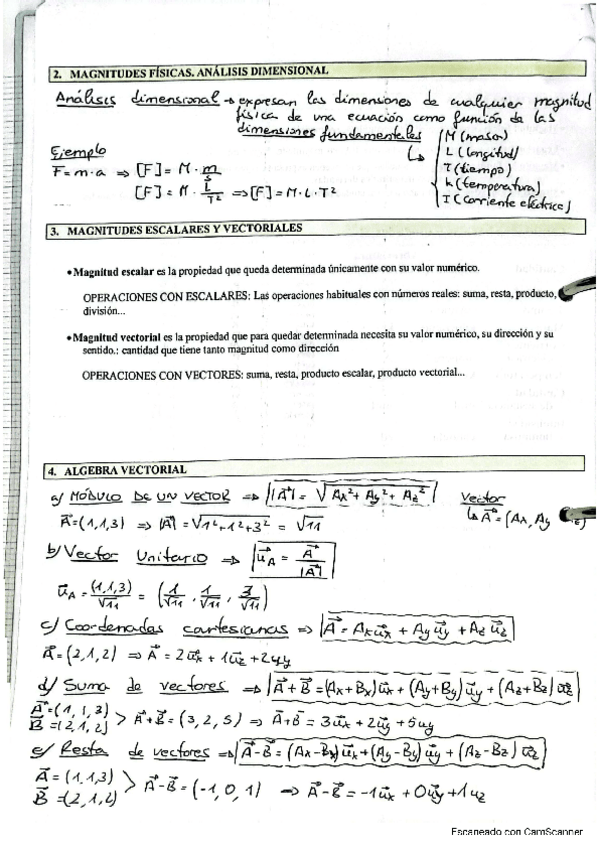 2. MAGNITUDES FÍSICAS. ANÁLISIS DIMENSIONAL
Análisis dimensional → expresan las dimensiones de cualquier magnitud
física de una ecuación como función de las
dimensiones fundamentales
M (masa)
L (longitud)
T (tiempo)
K (temperatura)
I (corriente eléctrica)
Ejemplo
F = m·a ⇒ [F] = M · m/s
[F] = M · L/T² ⇒ [F] = M·L·T²
3. MAGNITUDES ESCALARES Y VECTORIALES
• Magnitud escalar es la propiedad que queda determinada únicamente con su valor numérico.
OPERACIONES CON ESCALARES: Las operaciones habituales con números reales: suma, resta, producto,
división...
• Magnitud vectorial es la propiedad que para quedar determinada necesita su valor numérico, su dirección y su
sentido.: cantidad que tiene tanto magnitud como dirección
OPERACIONES CON VECTORES: suma, resta, producto escalar, producto vectorial...
4. ALGEBRA VECTORIAL
a) MÓDULO DE UN VECTOR ⇒ |A⃗| = √(Ax² + Ay² + Az²)
Vector
↳ A⃗ = (Ax, Ay
A⃗ = (1,1,3) ⇒ |A⃗| = √(1²+1²+3²) = √11
b) Vector Unitario ⇒ u⃗A = A⃗/|A⃗|
u⃗A = (1,1,3)/√11 = (1/√11, 1/√11, 3/√11)
c) Coordenadas cartesianas ⇒ A⃗ = Ax u⃗x + Ay u⃗y + Az u⃗z
A⃗ = (2,1,2) ⇒ A⃗ = 2u⃗x + 1u⃗z + 2uy
d) Suma de vectores ⇒ A⃗ + B⃗ = (Ax+Bx) u⃗x + (Ay+By) u⃗y + (Az+Bz) u⃗z
A⃗ = (1, 1, 3)
B⃗ = (2, 1, 2) > A⃗+B⃗ = (3, 2, 5) ⇒ A⃗+B⃗ = 3u⃗x + 2u⃗y + 5uy
e) Resta de vectores ⇒ A⃗-B⃗ = (Ax-Bx) u⃗x + (Ay-By) u⃗y + (Az-Bz) u⃗z
A⃗ = (1,1,3)
B⃗ = (2,1,2) > A⃗-B⃗ = (-1, 0, 1) ⇒ A⃗-B⃗ = -1u⃗x + 0u⃗y + 1u⃗z
Escaneado con CamScanner